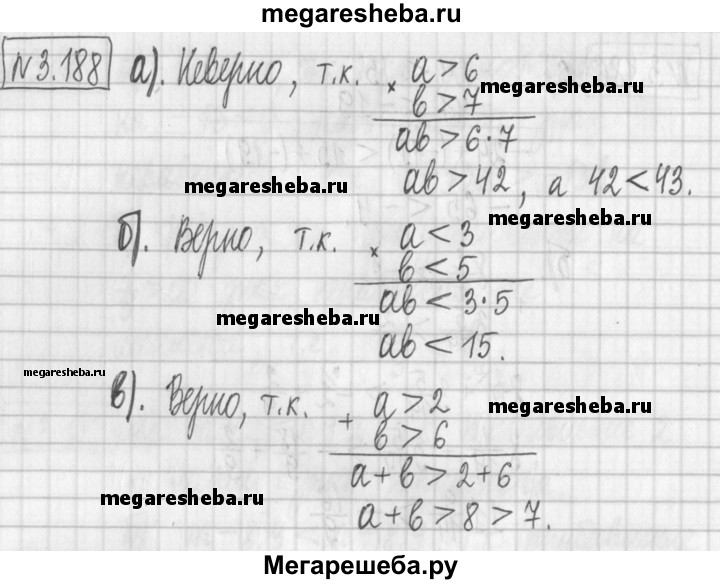 megaresheba.ru
№3.188 а). Неверно, т.к. × a > 6
b > 7 megaresheba.ru
ab > 6·7
megaresheba.ru ab > 42, а 42 < 43.
megaresheba.ru
б). Верно, т.к. × a < 3
b < 5
ab < 3·5
megaresheba.ru
ab < 15.
megaresheba.ru
в). Верно, т.к. + a > 2 megaresheba.ru
b > 6
a + b > 2 + 6
megaresheba.ru
a + b > 8 > 7.
Мегарешеба.ру